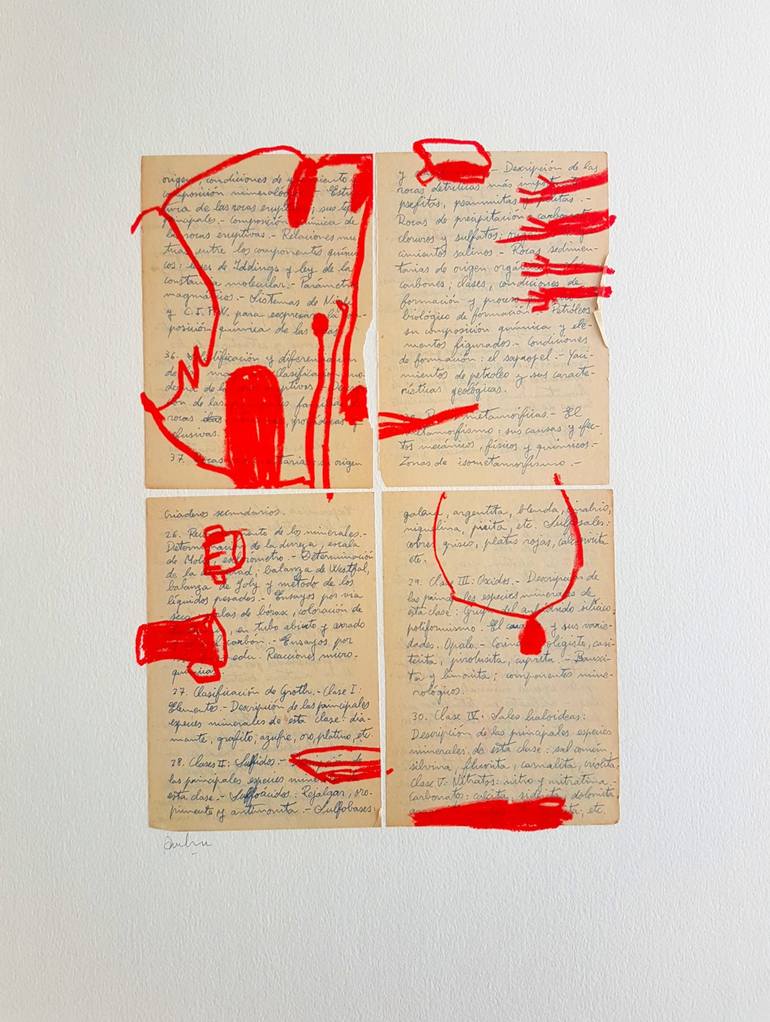 origen, condiciones de
composición mineralógica.- Estruc-
tura de las rocas eruptivas; sus tipos
principales.- Composición química de
las rocas eruptivas.- Relaciones mu-
tuas entre los componentes quími-
cos: leyes de Iddings y ley de la
constancia molecular.- Parámetros
magmáticos.- Sistemas de Niggli
y C.I.P.W. para expresar la com-
posición química de las
36. y diferenciación
de Clasificación mo-
de las
ción de las familias
rocas
efusivas.
37. Rocas origen
y - Descripción de las
rocas detríticas más
psefitas, psammitas
Rocas de precipitación; carbonatos
cloruros y sulfatos;
cimientos salinos - Rocas sedimen-
tarias de origen orgánico
carbones; clases, condiciones de
formación y proceso
biológico de formación. Petróleos
su composición química y ele-
mentos figurados.- Condiciones
de formación: el sapropel.- Yaci-
mientos de petróleo y sus caracte-
rísticas geológicas.
metamórficas - El
metamorfismo: sus causas y efec-
tos mecánicos, físicos y químicos.-
Zonas de isometamorfismo.-
Criaderos secundarios.
26. de los minerales.-
de la dureza, escala
de Mohs - Determinación
de la balanza de Westfal,
balanza de Joly y método de los
líquidos pesados.- Ensayos por vía
seca perlas de bórax, coloración de
en tubo abierto y cerrado
carbón.- Ensayos por
Reacciones micro-
químicas
27. Clasificación de Groth.- Clase I:
Elementos.- Descripción de las principales
especies minerales de esta clase: dia-
mante, grafito, azufre, oro, platino, etc
28. Clase II: Sulfidos.- de
las principales especies minerales
esta clase.- Sulfoácidos: Rejalgar, oro-
pimente y antimonita.- Sulfobases:
galena, argentita, blenda, cinabrio,
niquelina, pirita, etc. Sulfosales:
cobres grises, platas rojas, calcopirita
etc.
29. Clase III: Oxidos.- Descripción de
las principales especies minerales de
esta clase: Grupo del anhídrido silícico.
polimorfismo.- El cuarzo y sus varie-
dades. Opalo.- oligisto, casi-
terita, pirolusita, cuprita.- Bauxi-
ta y limonita; componentes mine-
rológicos.
30. Clase IV. Sales haloideas:
Descripción de las principales especies
minerales de esta clase: sal común,
silvina, fluorita, carnalita, criolita.
Clase V: Nitratos: nitro y nitratina.
Carbonatos: calcita, siderita, dolomita
etc.